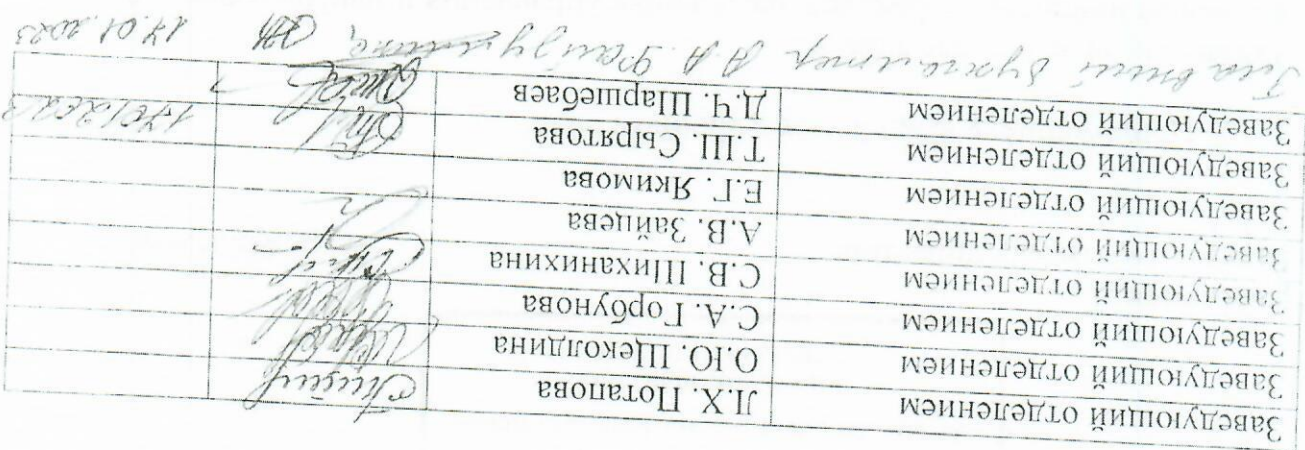 Заведующий отделением Л.Х. Потапова
Заведующий отделением О.Ю. Щеколдина
Заведующий отделением С.А. Горбунова
Заведующий отделением С.В. Шиханихина
Заведующий отделением А.В. Зайцева
Заведующий отделением Е.Г. Якимова
Заведующий отделением Т.Ш. Сырятова 17.01.2023
Заведующий отделением Д.Ч. Шаршебаев
Главный бухгалтер А.А. 17.01.2023